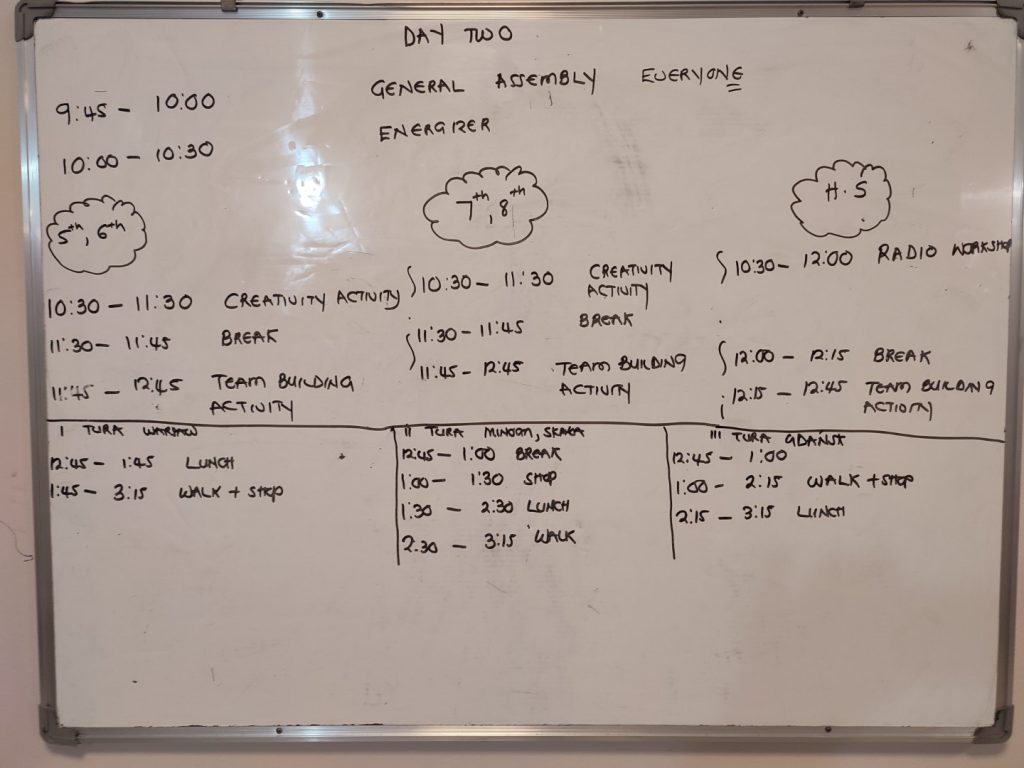 DAY TWO
9:45 - 10:00 GENERAL ASSEMBLY EVERYONE
10:00 - 10:30 ENERGIZER
5th, 6th
10:30 - 11:30 CREATIVITY ACTIVITY
11:30 - 11:45 BREAK
11:45 - 12:45 TEAM BUILDING
ACTIVITY
7th, 8th
10:30 - 11:30 CREATIVITY
ACTIVITY
11:30 - 11:45 BREAK
11:45 - 12:45 TEAM BUILDING
ACTIVITY
H.S
10:30 - 12:00 RADIO WORKSHOP
12:00 - 12:15 BREAK
12:15 - 12:45 TEAM BUILDING
I TURA WARSAW
12:45 - 1:45 LUNCH
1:45 - 3:15 WALK + SHOP
II TURA
12:45 - 1:00 BREAK
1:00 - 1:30 SHOP
1:30 - 2:30 LUNCH
2.30 - 3:15 WALK
III TURA GDAŃSK
12:45 - 1:00
1:00 - 2:15 WALK + SHOP
2:15 - 3:15 LUNCH